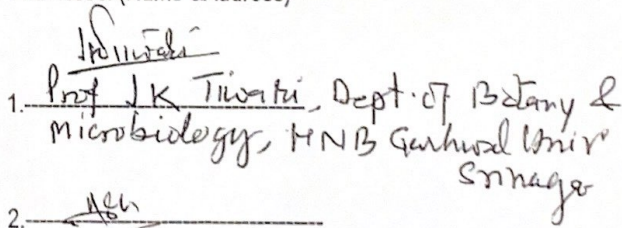 JKTiwari
1. Prof JK Tiwari, Dept. of Botany &
Microbiology, HNB Garhwal Univ
Srinagar
2.